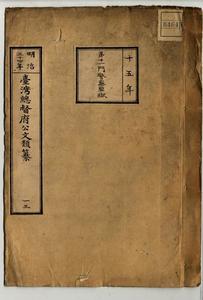 十五年
第十一門警察監獄
明治
三十一年
臺灣總督府公文類纂
一三